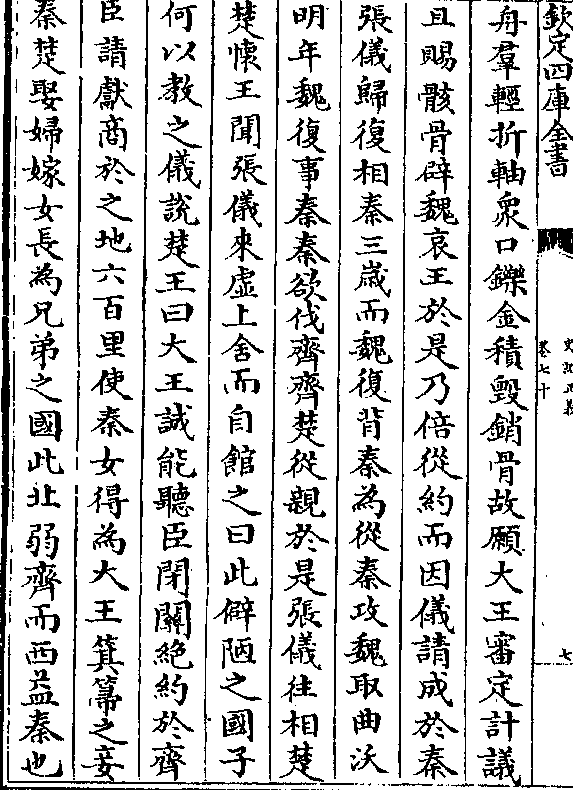 欽定四庫全書
史記正義
卷七十
七
舟羣輕折軸衆口鑠金積毀銷骨故願大王審定計議
且賜骸骨辟魏哀王於是乃倍從約而因儀請成於秦
張儀歸復相秦三歲而魏復背秦為從秦攻魏取曲沃
明年魏復事秦秦欲伐齊齊楚從親於是張儀往相楚
楚懷王聞張儀來虛上舍而自館之曰此僻陋之國子
何以教之儀說楚王曰大王誠能聽臣閉關絶約於齊
臣請獻商於之地六百里使秦女得為大王箕箒之妾
秦楚娶婦嫁女長為兄弟之國此北弱齊而西益秦也